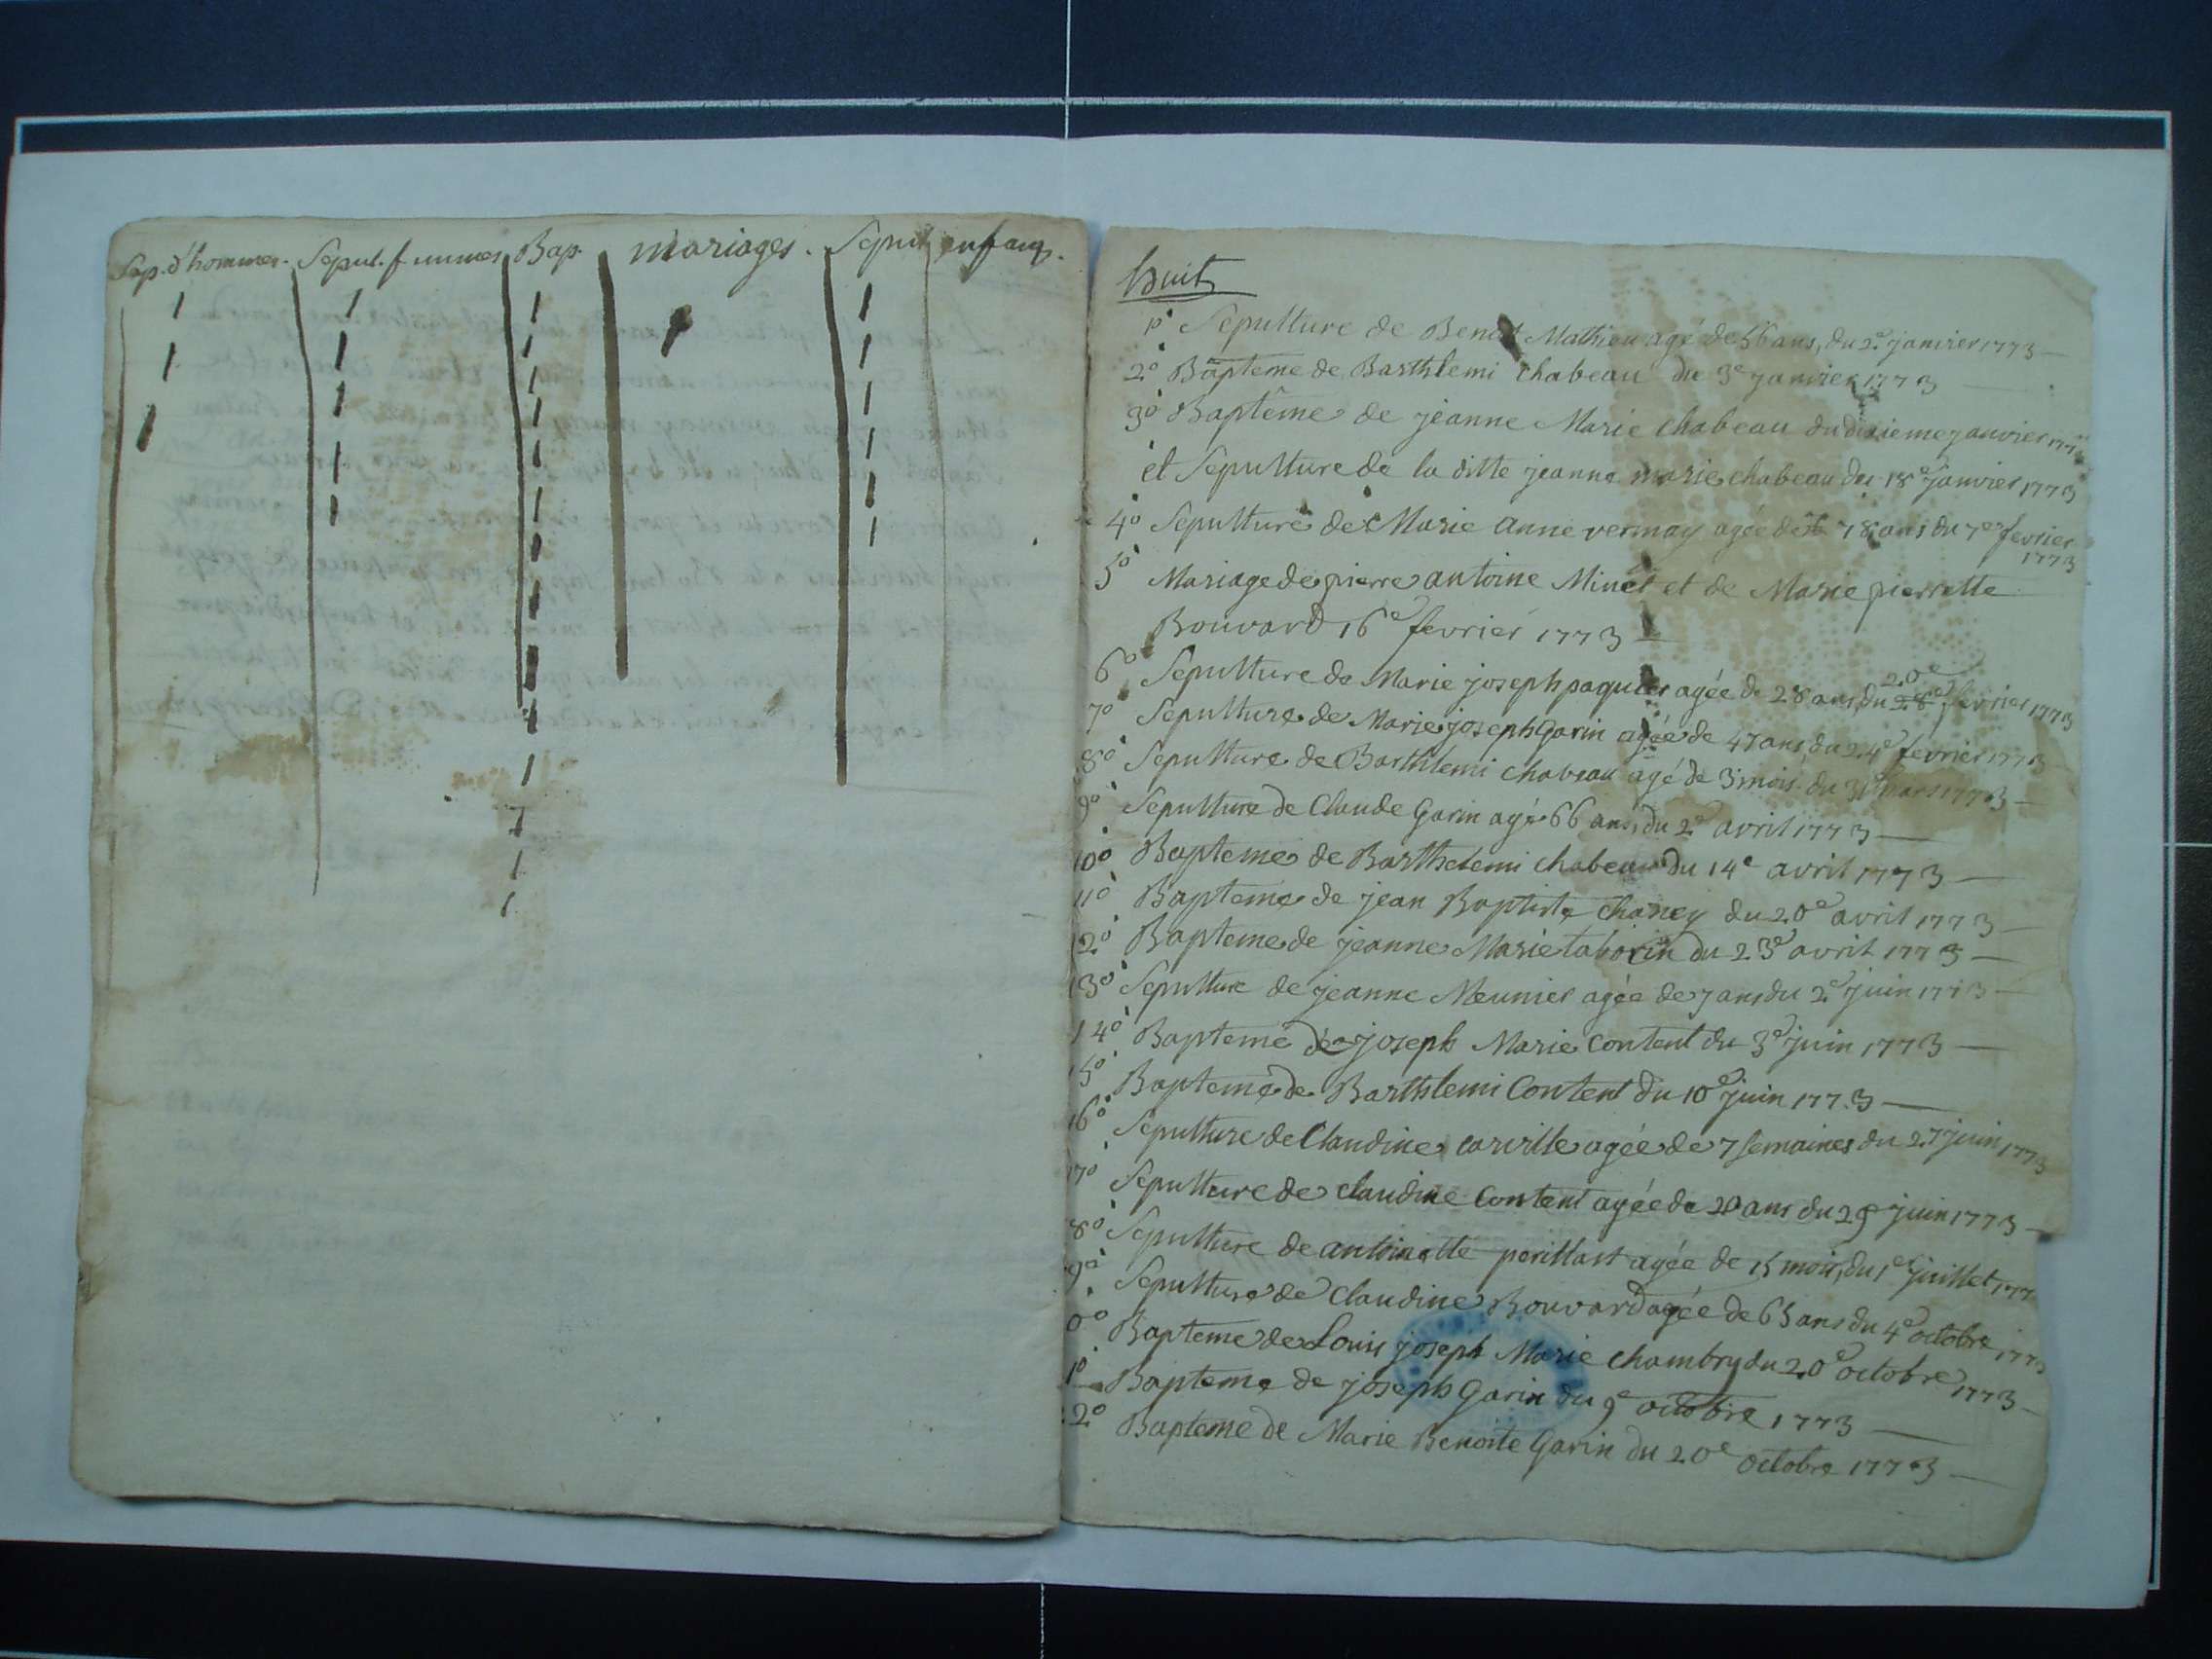 Sep. d'hommes. Sepul. femmes Bap. mariages. Sepul enfans.
1 1 1 1 1
1 1 1 1
1 1 1 1
1 1 1
1 1 1
1 1
1
1
1
1
1
1
1
huit
1º Sepulture de Benoit Mathieu agé de 56 ans, du 2e janvier 1773
2º Bapteme de Barthlemi Chabeau du 3e janvier 1773
3º Baptême de jeanne Marie Chabeau du dixieme janvier 1773
et Sepulture de la ditte jeanne marie chabeau du 18e janvier 1773
4º Sepulture de Marie anne vernay agée de 78 ans du 7e fevrier
1773
5º Mariage de pierre antoine Minet et de Marie pierrette
Bouvard 16e fevrier 1773
6º Sepulture de Marie joseph paquier agée de 28 ans, du 20e fevrier 1773
7º Sepulture de Marie joseph Garin agée de 47 ans, du 24e fevrier 1773
8º Sepulture de Barthlemi chabeau agé de 3 mois du 31 mars 1773
9º Sepulture de Claude Garin agé 66 ans, du 2e avril 1773
10º Bapteme de Barthelemi Chabeau du 14e avril 1773
11º Bapteme de jean Baptiste Chaney du 20e avril 1773
12º Bapteme de jeanne Marie taborin du 23e avril 1773
13º Sepulture de jeanne Meunier agée de 7 ans du 2e juin 1773
14º Bapteme de joseph Marie Content du 3e juin 1773
5º Bapteme de Barthlemi Content du 10e juin 1773
16º Sepulture de Claudine carville agée de 7 semaines du 27 juin 1773
17º Sepulture de claudine Content agée de 20 ans du 29 juin 1773
8º Sepulture de antoinette perillast agée de 15 mois, du 1er juillet 177
9º Sepulture de Claudine Bouvard agée de 65 ans du 4e octobre 1773
0º Bapteme de Louis joseph Marie Chambry du 20e octobre 1773
1º Bapteme de joseph Garin du 9e octobre 1773
2º Bapteme de Marie Benoite Garin du 20e octobre 1773